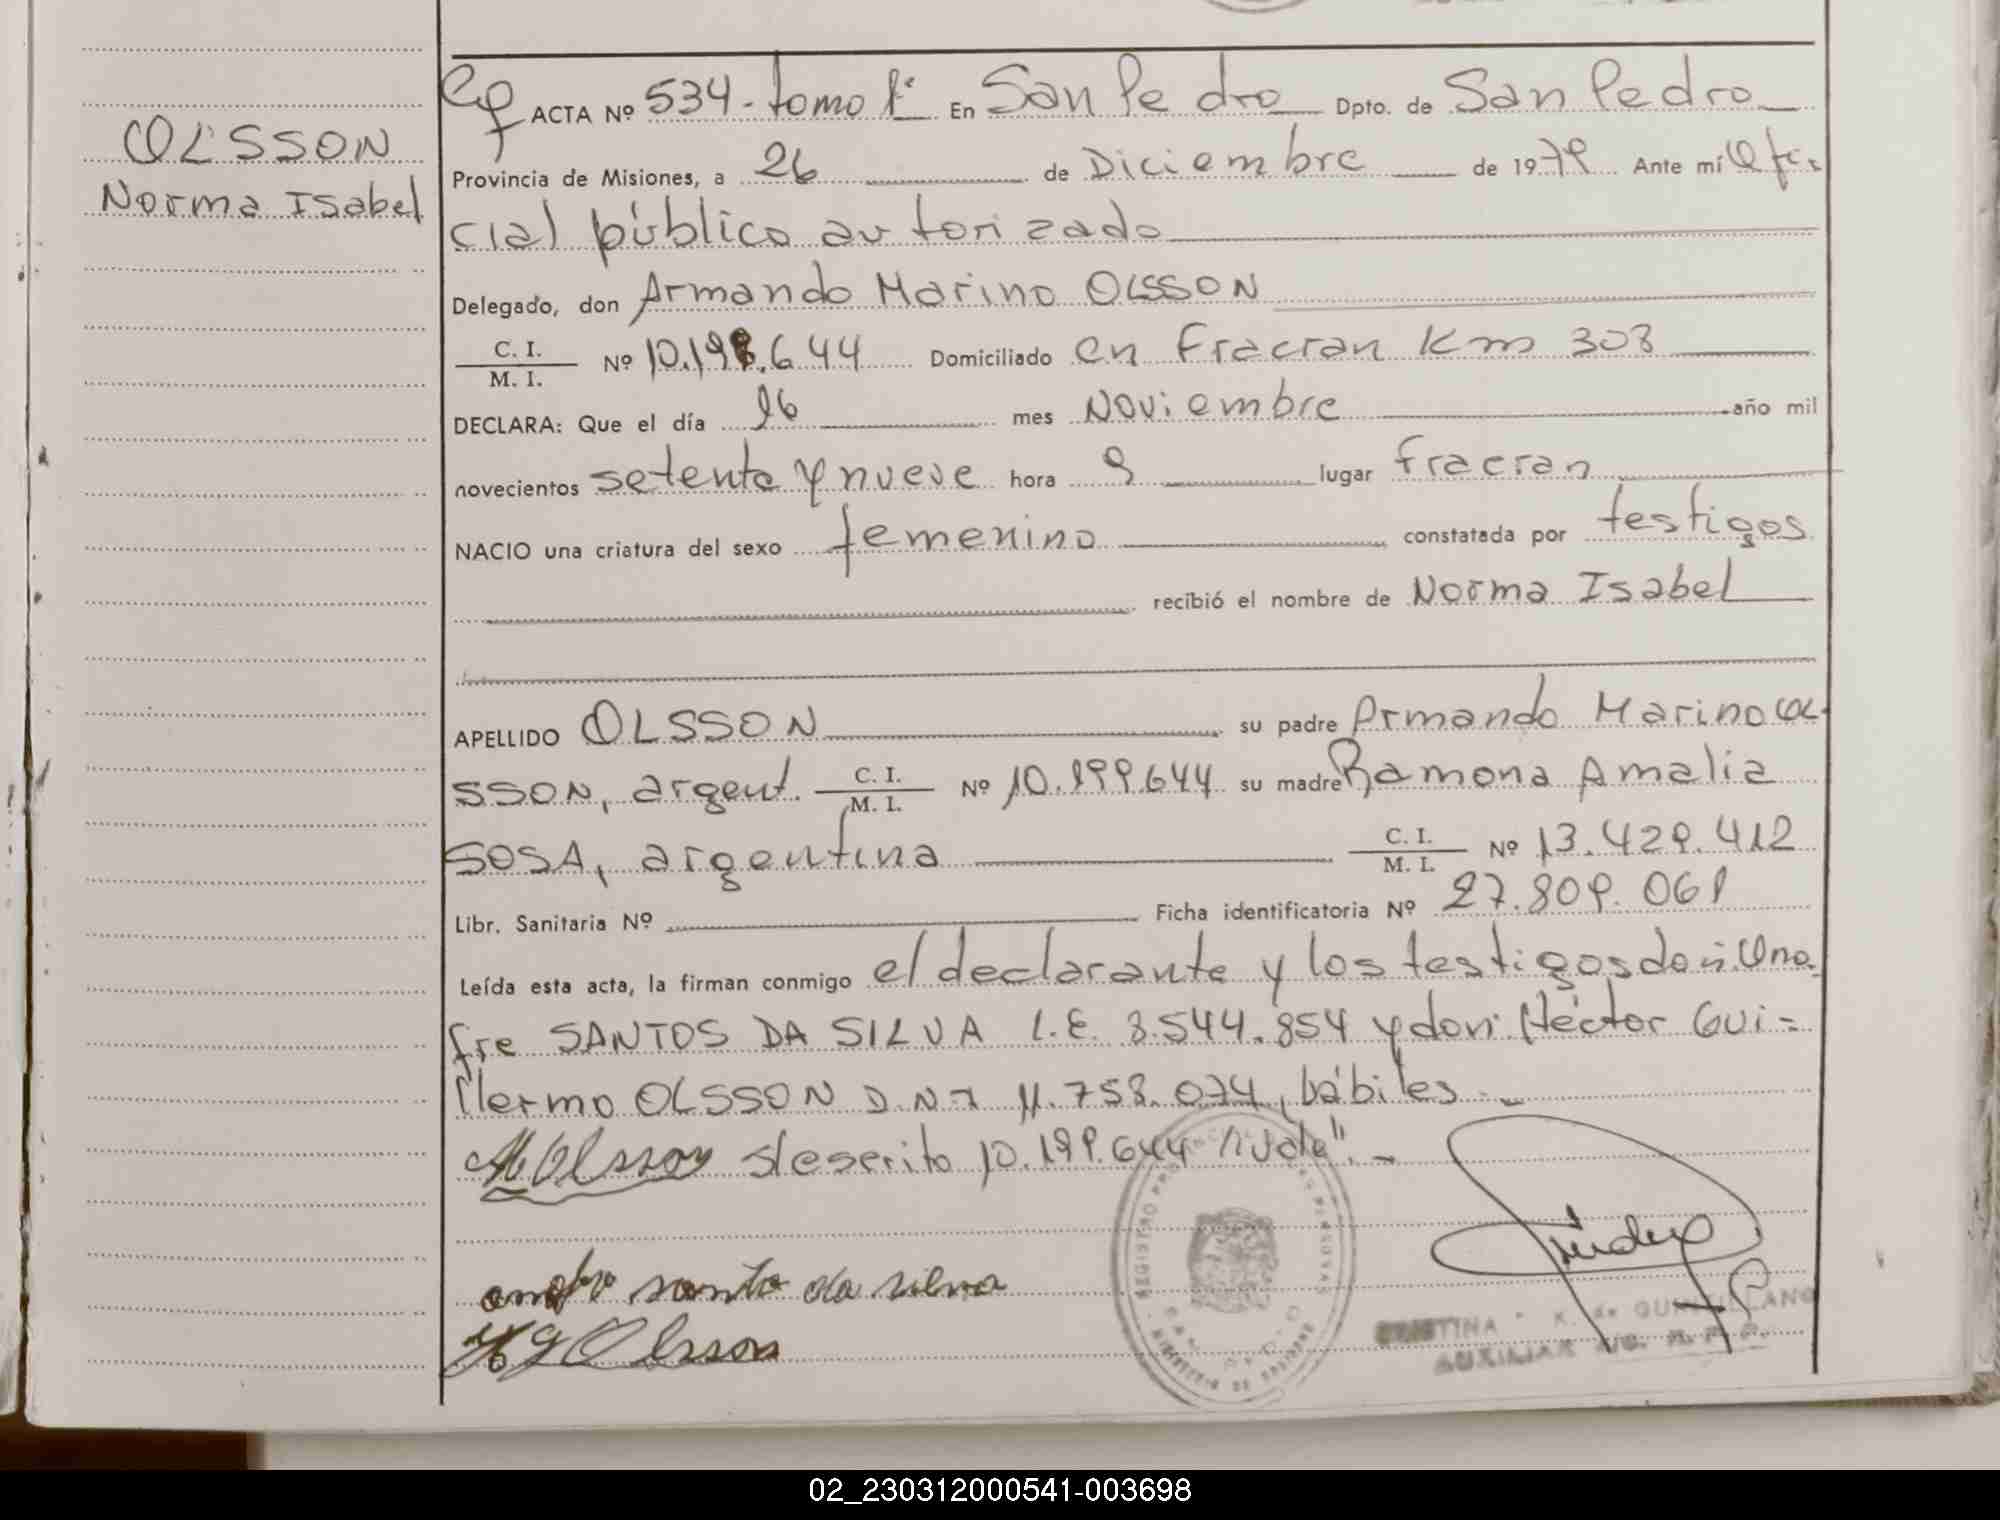 OLSSON
Norma Isabel
ACTA Nº 534 - tomo 1º En San Pedro Dpto. de San Pedro
Provincia de Misiones, a 26 de Diciembre de 1979 Ante mí Ofi-
cial público autorizado
Delegado, don Armando Marino OLSSON
C. I.
M. I. Nº 10.198.644 Domiciliado en Fracran Km 303
DECLARA: Que el día 16 mes Noviembre año mil
novecientos setenta y nueve hora 9 lugar Fracran
NACIO una criatura del sexo femenino constatada por testigos
recibió el nombre de Norma Isabel
APELLIDO OLSSON su padre Armando Marino OL-
SSON, argent. C. I. M. I. Nº 10.199.644 su madre Ramona Amalia
SOSA, argentina C. I. M. I. Nº 13.429.412
Libr. Sanitaria Nº Ficha identificatoria Nº 27.809.061
Leída esta acta, la firman conmigo el declarante y los testigos don: Ono-
fre SANTOS DA SILVA L.E. 8.544.854 y don: Héctor Gui=
llermo OLSSON D.N.I 11.758.074, hábiles.-
AMOlsson s/escrito 10.199.644 "vale".-
santo da silva
HGOlsson
REGISTRO PROVINCIAL DE LAS PERSONAS
SAN PEDRO
MINISTERIO DE GOBIERNO
CRISTINA K. de QUINTILLANO
AUXILIAR A/C. R. P. P.
02_230312000541-003698